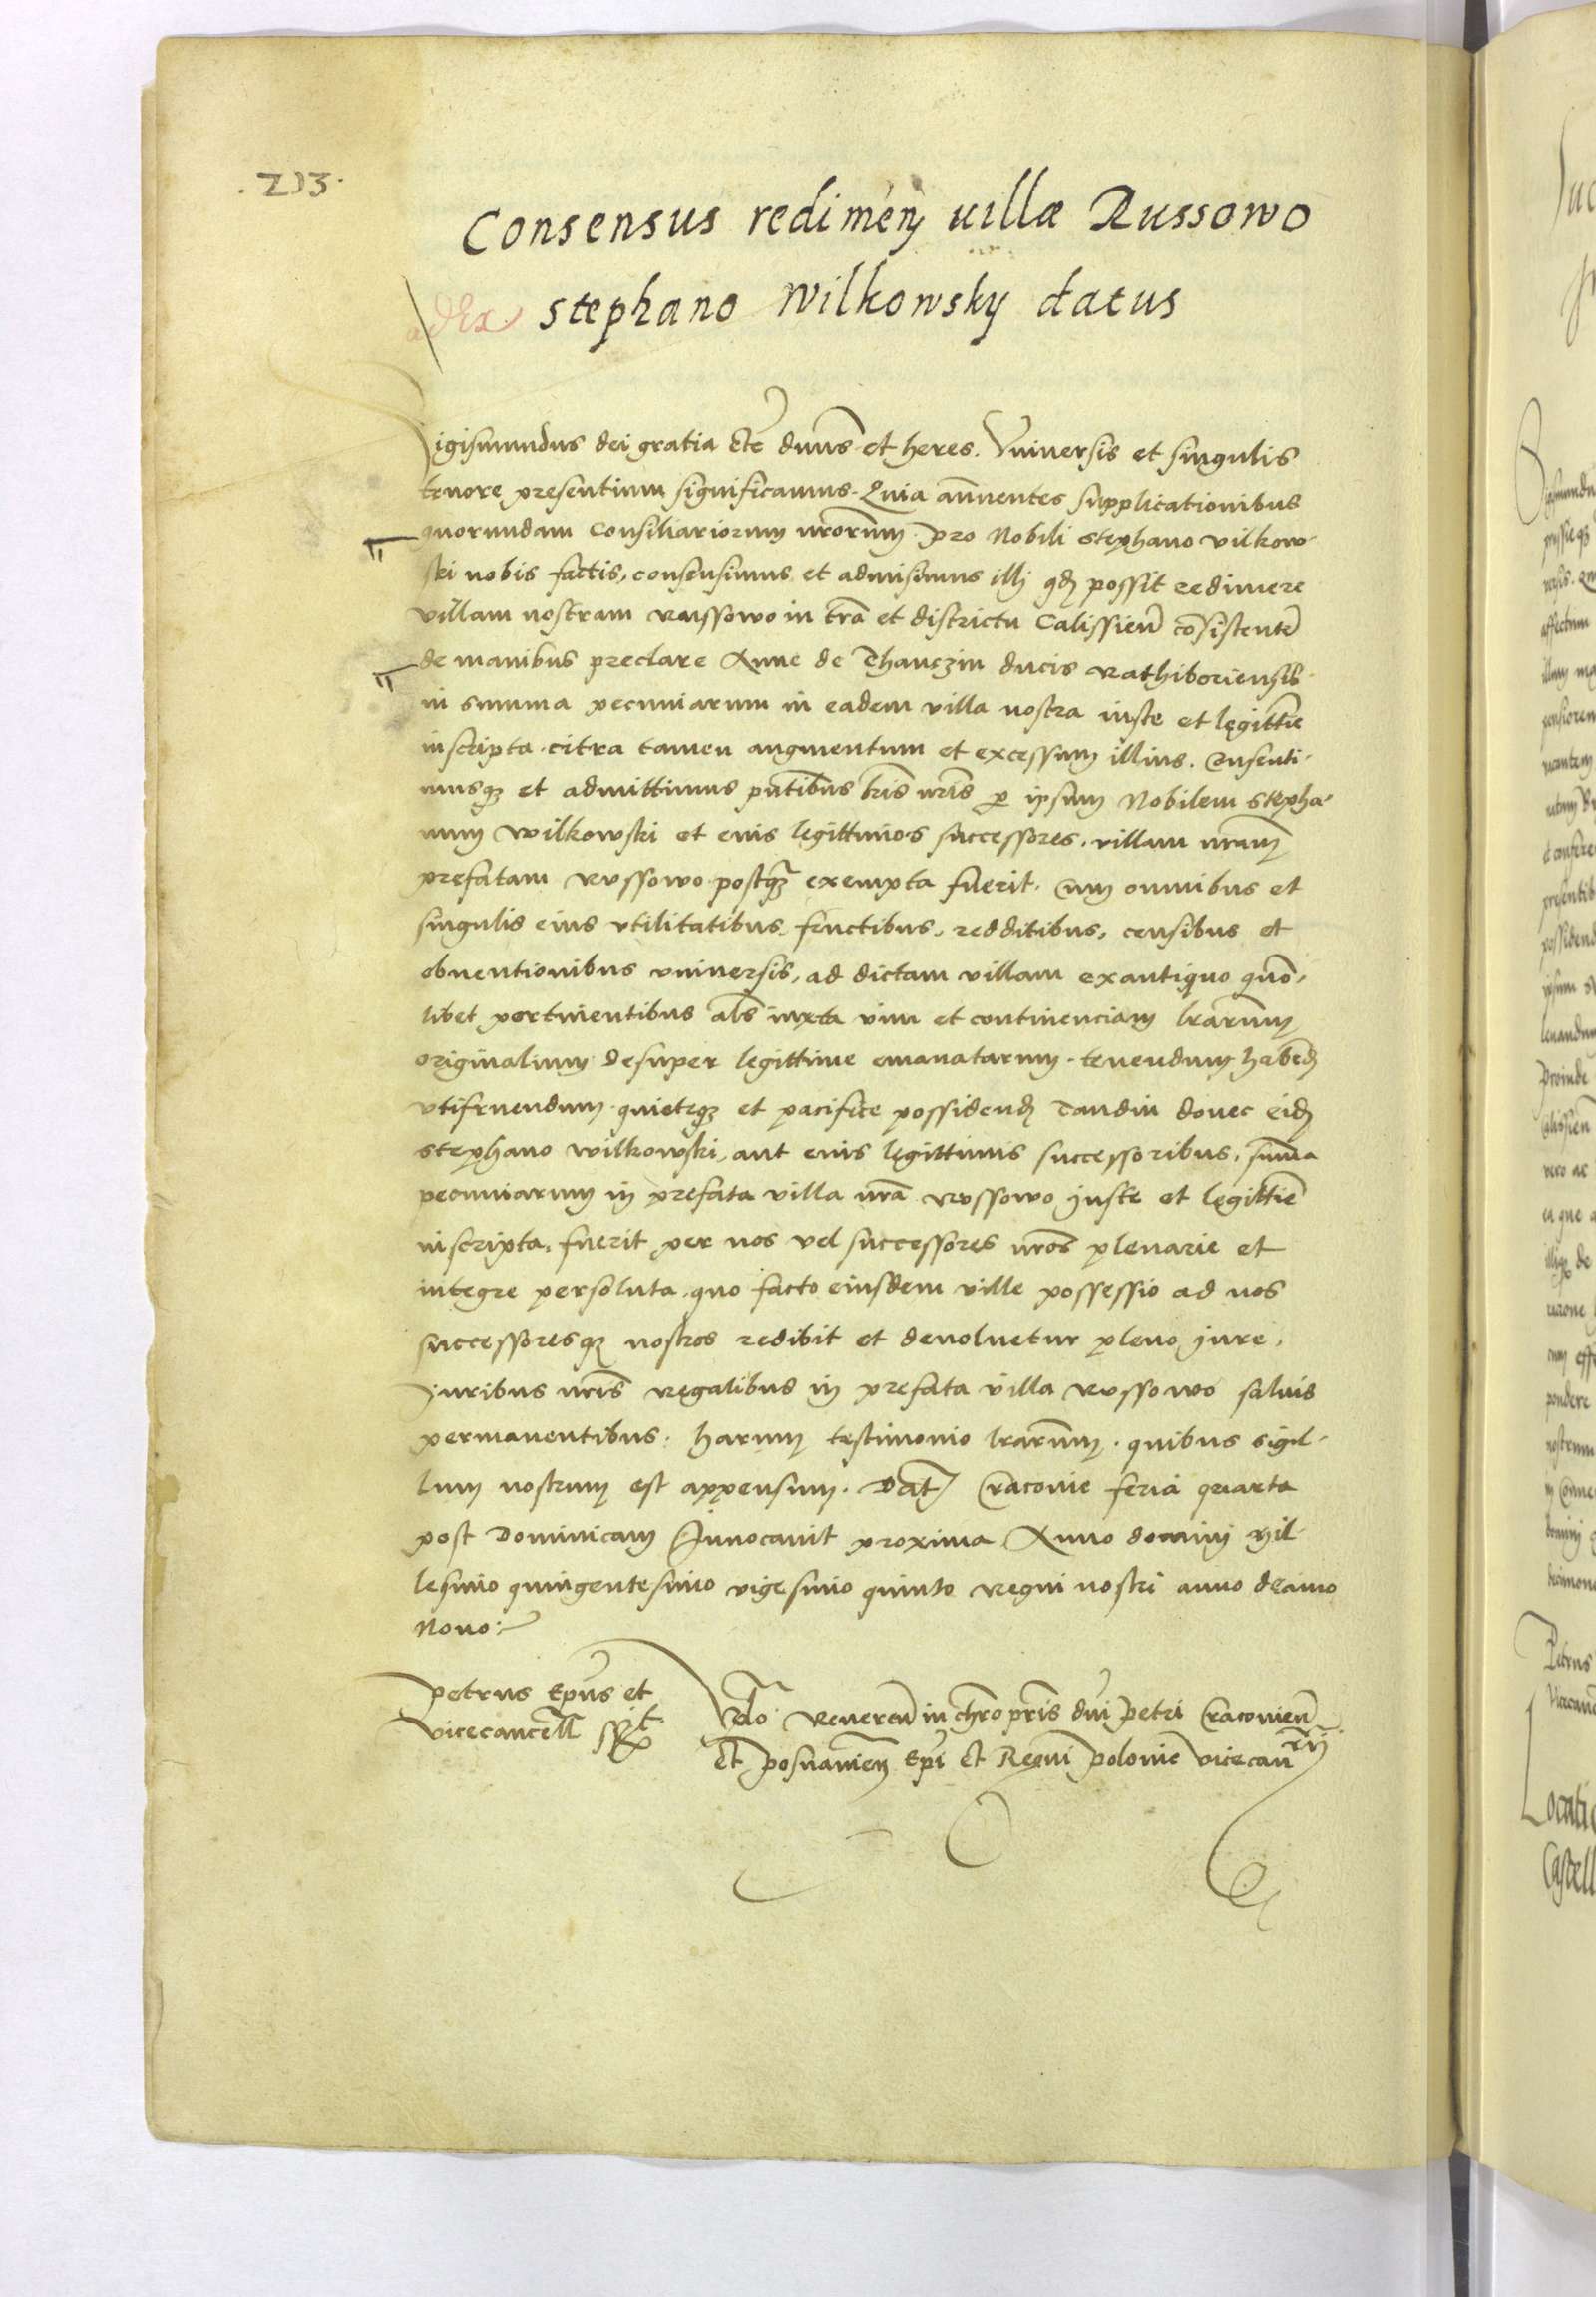 .213.
Consensus redimen uillæ Russowo
stephano Wilkowsky datus
Sigismundus dei gratia etc dnns et heres. Vniuersis et singulis
tenore presentium significamus. Quia annuentes supplicationibus
quorundam Consiliariorum nrorum pro Nobili stephano vilkow-
ski nobis factis, consensimus et admisimus illi qd possit redimere
villam nostram Russowo in tra et districtu Calissien consistente
de manibus preclare Anne de Thanczin ducis Rathiboriensis
in summa pecuniarum in eadem villa nostra iuste et legittie
inscripta. citra tamen augmentum et excessum illius. Consenti-
musq et admittimus pntibus lris nris p ipsum Nobilem stepha-
num Wilkowski et eius legittimos successores. villam nram
prefatam Russowo postq exempta fuerit. cum omnibus et
singulis eius vtilitatibus, fructibus, redditibus, censibus et
obuentionibus vniuersis, ad dictam villam exantiquo quo-
libet pertinentibus als iuxta vim et continenciam lrarum
originalium desuper legittime emanatarum. tenendum habend
vtifruendum. quieteq et pacifice possidend Tandiu donec eid
stephano wilkowski, aut eius legittimis successoribus, suma
pecuniarum in prefata villa nra Russowo juste et legittie
inscripta, fuerit per nos vel successores nros plenarie et
integre persoluta. quo facto eiusdem ville possessio ad nos
successoresq nostros redibit et deuoluetur pleno jure.
Juribus nris Regalibus in prefata villa Russowo saluis
permanentibus. harum testimonio lrarum. quibus sigil-
lum nostrum est appensum. Dat Cracouie feria quarta
post Dominicam Inuocauit proxima Anno domini Mil-
lesimo quingentesimo vigesimo quinto Regni nostri anno decimo
Nono.
Petrus Epus et
Vicecancell sspt
Rlo Reueren in chro pris dni Petri Cracouien
et posnanien Epi et Regni polonie vicecanrij